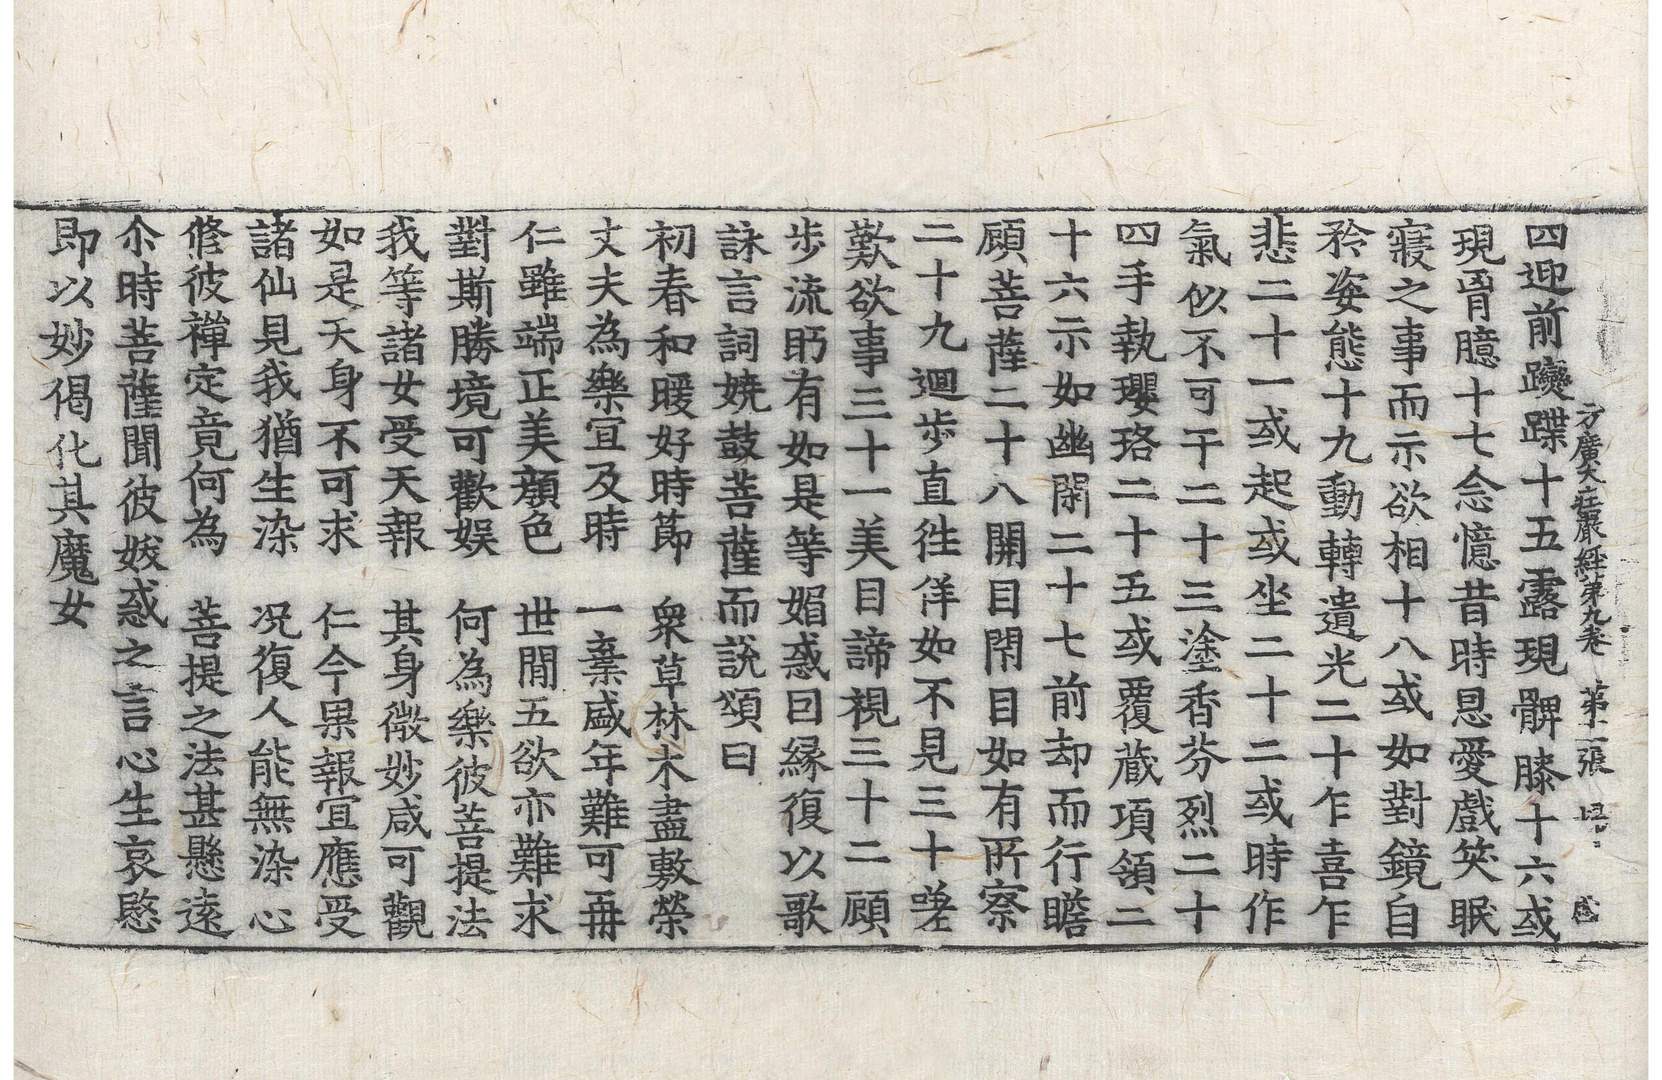 方廣大莊嚴經第九卷 第十一張
四迎前躞蹀十五露現髀膝十六或
現胷臆十七念憶昔時恩愛戲笑眠
寢之事而示欲相十八或如對鏡自
矜姿態十九動轉遺光二十乍喜乍
悲二十一或起或坐二十二或時作
氣似不可干二十三塗香芬烈二十
四手執瓔珞二十五或覆藏項領二
十六示如幽閑二十七前却而行瞻
顧菩薩二十八開目閇目如有所察
二十九迴歩直徃佯如不見三十嗟
歎欲事三十一美目諦視三十二顧
歩流眄有如是等媚惑因縁復以歌
詠言詞嬈鼓菩薩而說頌曰
初春和暖好時節 衆草林木盡敷榮
丈夫為樂宜及時 一棄盛年難可再
仁雖端正美顔色 世間五欲亦難求
對斯勝境可歡娛 何為樂彼菩提法
我等諸女受天報 其身微妙咸可觀
如是天身不可求 仁今果報宜應受
諸仙見我猶生染 况復人能無染心
修彼禪定竟何為 菩提之法甚懸遠
尒時菩薩聞彼妭惑之言心生哀愍
即以妙偈化其魔女